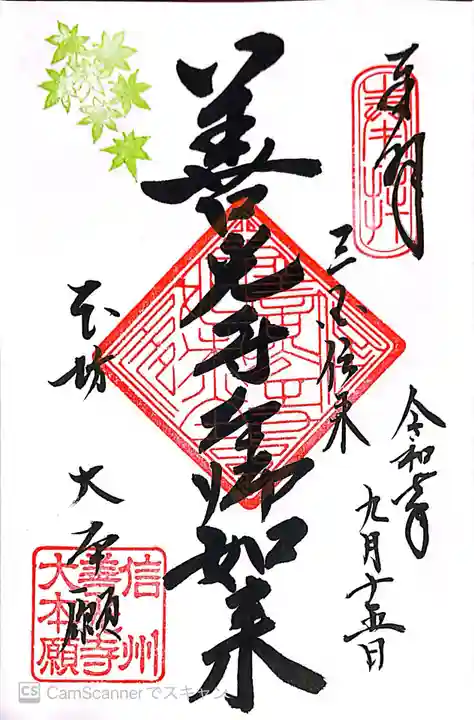 奉拝
三国伝来
令和年
九月十五日
善光寺御如来
本坊
大本願
信州
善光寺
大本願
CS CamScannerでスキャン